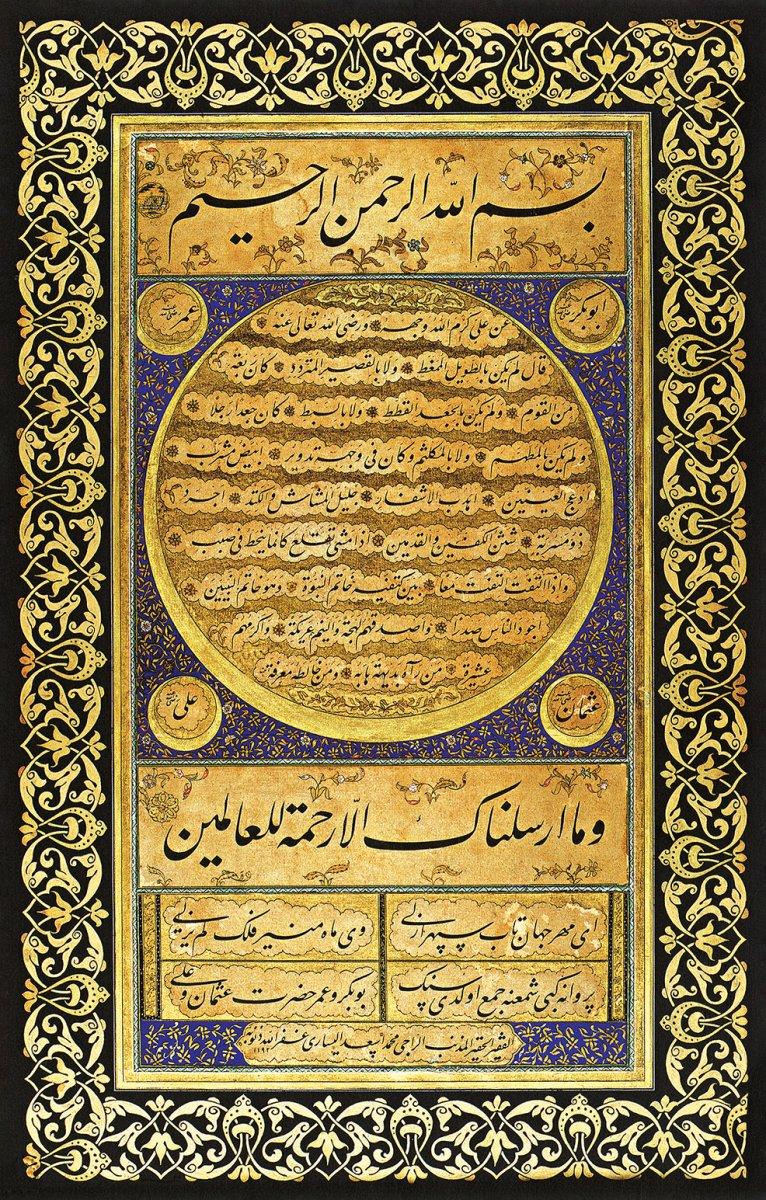 بسم الله الرحمن الرحيم
ابوبكر
عمر
عن على كرم الله وجهه ورضى الله تعالى عنه
قال لم يكن بالطويل الممغط ولا بالقصير المتردد كان ربعة
من القوم ولم يكن بالجعد القطط ولا بالسبط كان جعدا رجلا
ولم يكن بالمطهم ولا بالمكلثم وكان فى وجهه تدوير ابيض مشرب
ادعج العينين اهدب الاشفار جليل المشاش والكتد اجرد
ذو مسربة شثن الكفين والقدمين اذا مشى تقلع كانما ينحط فى صبب
واذا التفت التفت معا بين كتفيه خاتم النبوة وهو خاتم النبيين
اجود الناس صدرا واصدقهم لهجة والينهم عريكة واكرمهم
عشيرة من رآه بديهة هابه ومن خالطه معرفة
عثمان
على
وما ارسلناك الا رحمة للعالمين
اى مهر جهان تاب سپهر ازلى وى ماه منير فلك لم يزلى
پروانه كبى شمعنه جمع اولدى سنك بوبكر و عمر حضرت عثمان و على
الفقير الحقير المذنب الراجى محمد اسعد اليسارى غفر الله ذنوبه